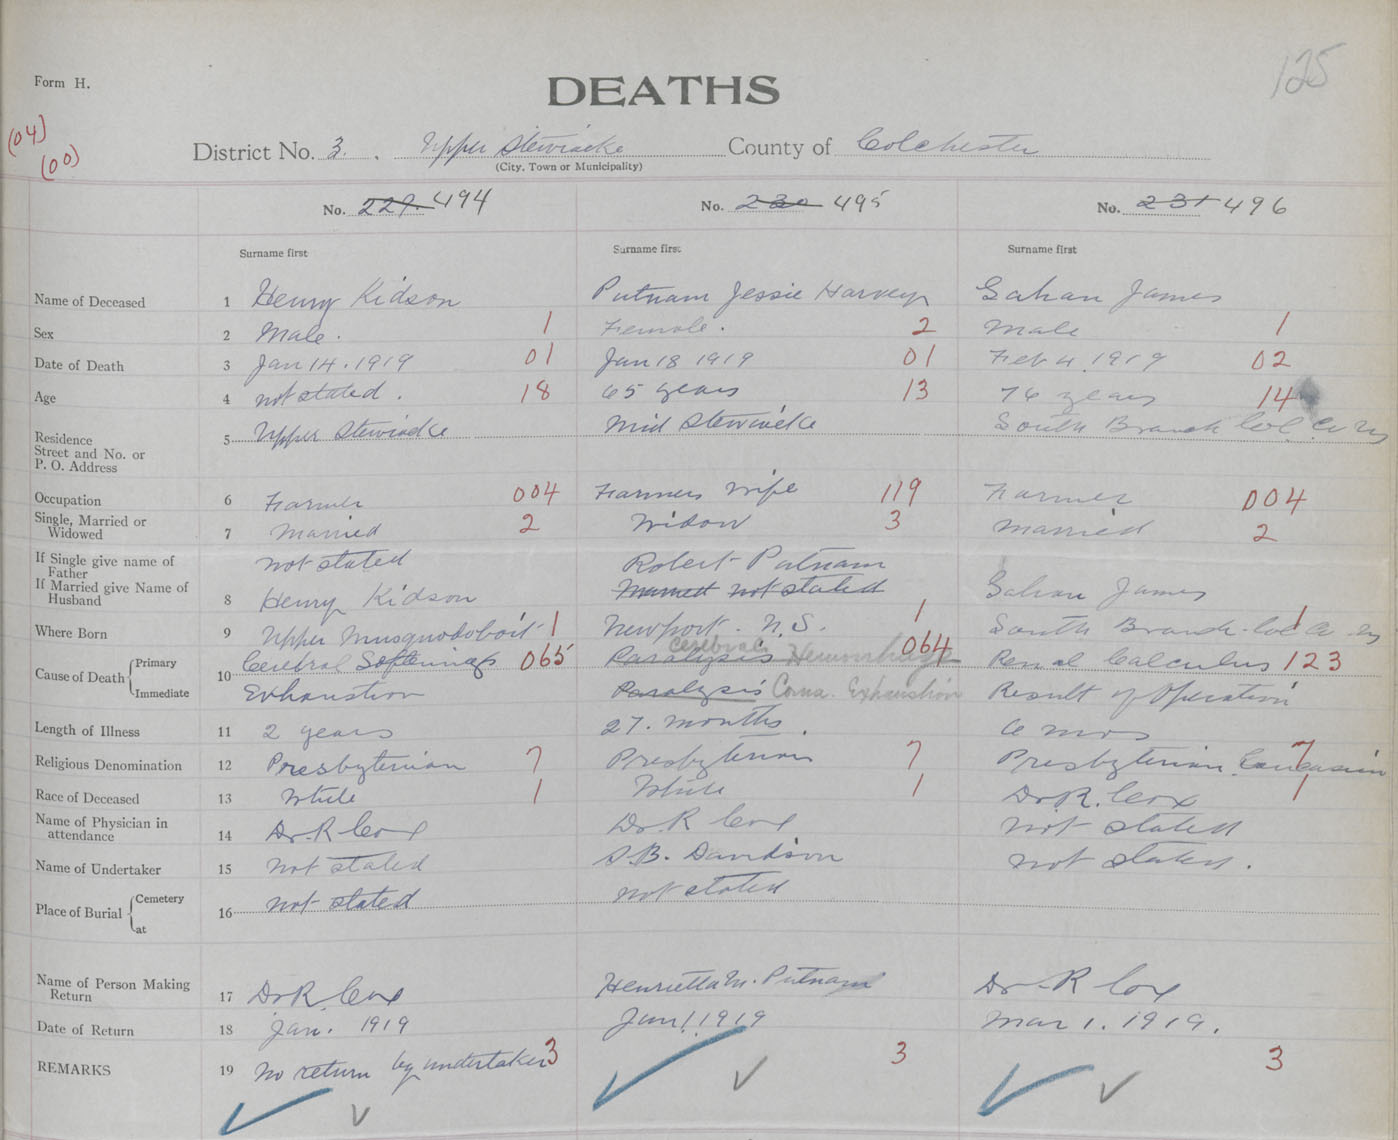 125
Form H.
DEATHS
(04)
(00)
District No. 3. Upper Stewiacke County of Colchester
(City, Town or Municipality)
No. 229. 494 No. 230 495 No. 231 496
Surname first Surname first Surname first
Name of Deceased 1 Henry Kidson Putnam Jessie Harvey Gahan James
Sex 2 Male. 1 Female. 2 Male 1
Date of Death 3 Jan 14. 1919 01 Jan 18 1919 01 Feb 4 1919 02
Age 4 not stated. 18 65 years 13 76 years 14
Residence
Street and No. or
P. O. Address
5 Upper Stewiacke Mid Stewiacke South Branch Col. Co NS
Occupation 6 Farmer 004 Farmers Wife 119 Farmer 004
Single, Married or
Widowed
7 Married 2 Widow 3 Married 2
If Single give name of
Father
not stated Robert Putnam
If Married give Name of
Husband
8 Henry Kidson Married not stated Gahan James
Where Born 9 Upper Musquodoboit 1 Newport. N.S. 1 South Branch Col Co NS 1
Cause of Death Primary 10 Cerebral Softening 065 Paralysis Cerebral Hemorrhage 064 Renal Calculus 123
Immediate Exhaustion Paralysis Coma. Exhaustion Result of Operation
Length of Illness 11 2 years 27. months 6 mos
Religious Denomination 12 Presbyterian 7 Presbyterian 7 Presbyterian 7 Caucasian
Race of Deceased 13 White 1 White 1 Dr. R. Cox 1
Name of Physician in
attendance
14 Dr R Cox Dr R Cox not stated
Name of Undertaker 15 Not stated S.B. Davidson not stated.
Place of Burial Cemetery at 16 not stated not stated
Name of Person Making
Return
17 Dr R Cox Henrietta M. Putnam Dr. R Cox
Date of Return 18 Jan. 1919 Jan 1919 Mar 1. 1919.
REMARKS 19 No return by undertaker 3 3 3